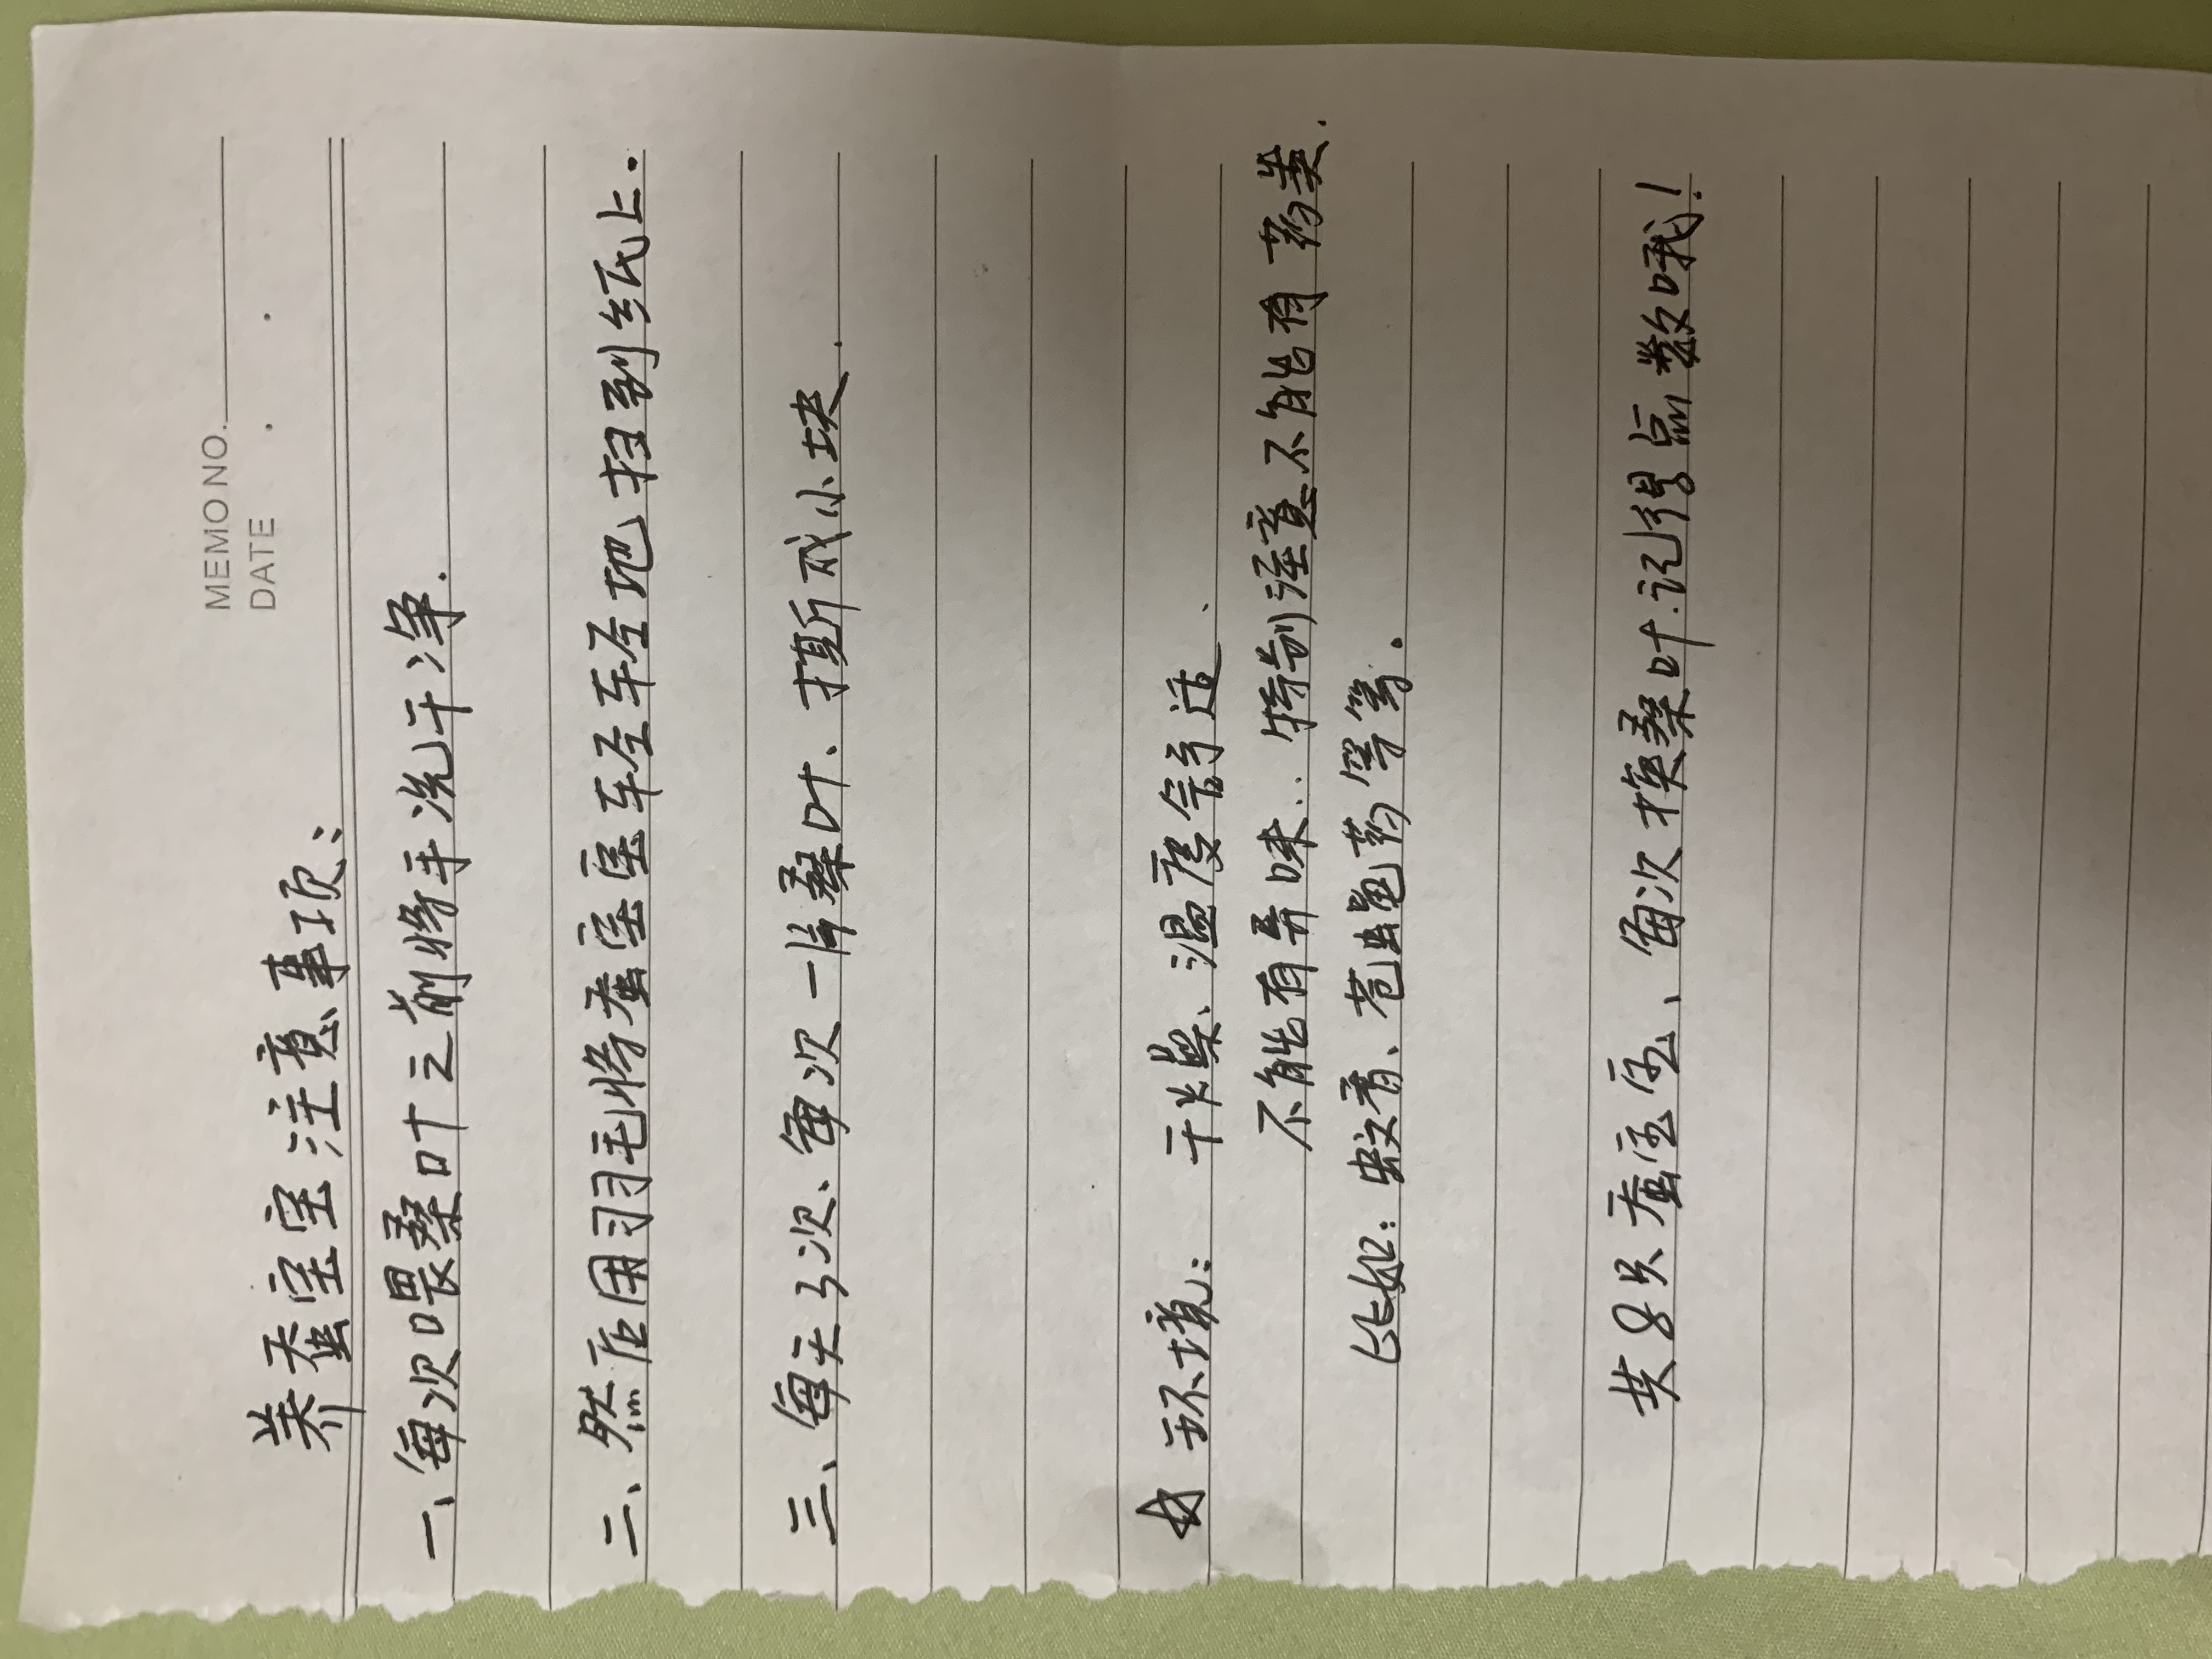 MEMO NO.
DATE . .
养蚕宝宝注意事项:
一、每次喂桑叶之前将手洗干净.
二、然后用羽毛将蚕宝宝轻轻地扫到纸上.
三、每天3次、每次一片桑叶、撕成小块.
☆ 环境: 干燥、温度合适、
不能有异味.. 特别注意不能有药类.
比如: 蚊香、苍蝇药等等.
共8只蚕宝宝、每次换桑叶.记得点数哦!